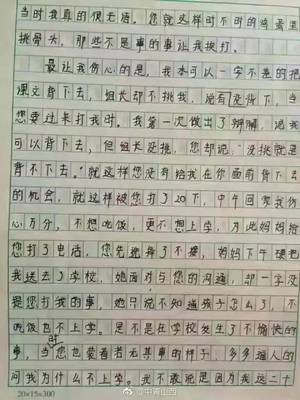 当时我真的很无语。您就这样时不时的鸡蛋里
挑骨头，那些不是事的事让我挨打。
最让我伤心的是，我本可以一字不差的把
课文背下去，组长却不挑我，说有没背下，当
您要过来打我时。我第一次做出了辩解，说我
可以背下去，但组长没挑，您却说"没挑就是
背不下去。"就这样您没有给我在你面前背下去
的机会，就这样被您打了20下，中午回家我伤
心万分，不想吃饭，更不想上学，为此妈妈给
您打了电话，您先选择了不接，妈妈下午硬把
我送去了学校，她面对与您的沟通，却一字没
提您打我的事，她只说不知道孩子怎么了，不
吃饭也不上学。是不是在学校发生了不愉快的
事，当时您也装着若无其事的样子，多多逼人的
问我为什么不上学。我不敢说是因为我这二十
20×15=300
@中青山西